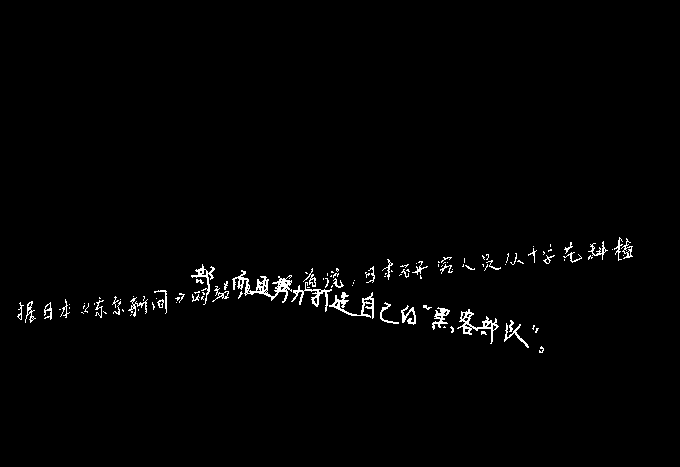 据日本《东京新闻》网站报道说，日本研究人员从十字花科植
部应努力打造自己的“黑客部队”。